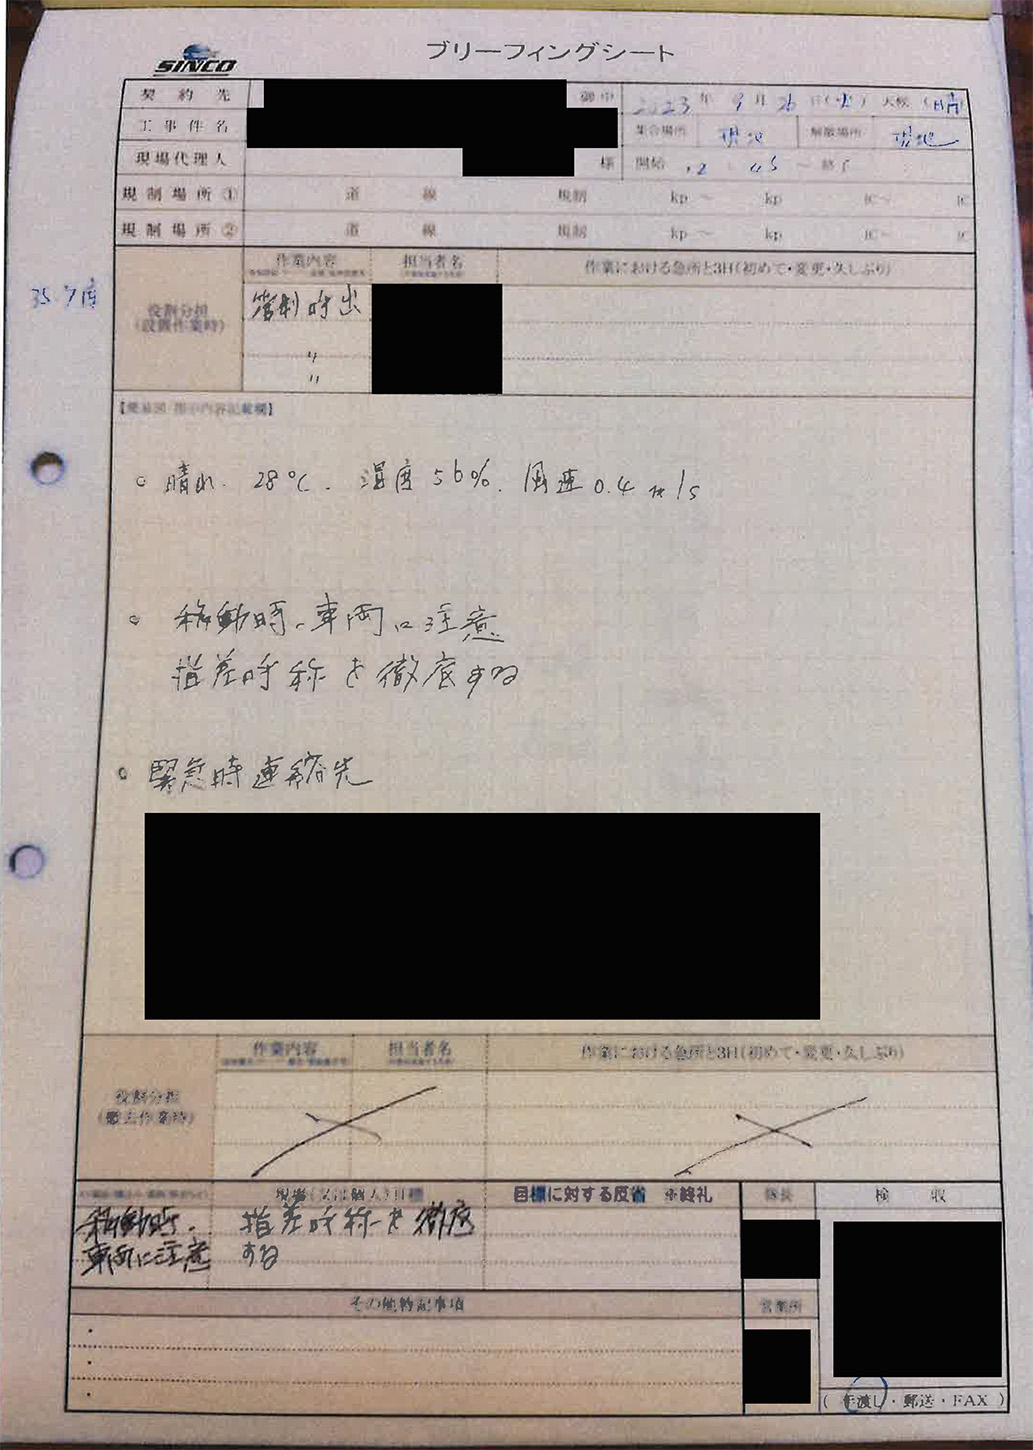 SINCO
ブリーフィングシート
契約先 御中 2023年9月26日(火) 天候(晴)
工事件名 集合場所 現地 解散場所 現地
現場代理人 様 開始 12:45 ～ 終了
規制場所① 道 線 規制 kp～ kp IC～ IC
規制場所② 道 線 規制 kp～ kp IC～ IC
作業内容 担当者名 作業における急所と3H(初めて・変更・久しぶり)
役割分担
(設置作業時)
管制呼出
〃
〃
○ 晴れ、28℃、湿度56%、風速0.4m/s
○ 移動時、車両に注意
指差呼称を徹底する
○ 緊急時連絡先
作業内容 担当者名 作業における急所と3H(初めて・変更・久しぶり)
役割分担
(撤去作業時)
現場(又は個人)目標 目標に対する反省 ※終礼 隊長 検収
移動時、 指差呼称を徹底
車両に注意 する
その他特記事項 営業所
・
・
・
(手渡し・郵送・FAX)